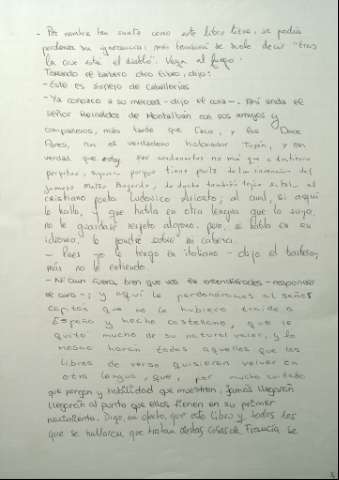 - Por nombre tan santo como este libro tiene, se podía
perdonar su ignorancia; mas también se suele decir "tras
la cruz está el diablo". Vaya al fuego.
Tomando el barbero otro libro, dijo:
- Este es Espejo de Caballerías
- Ya conozco a su merced - dijo el cura -. Ahí anda el
señor Reinaldos de Montalbán con sus amigos y
compañeros, más ladrones que Caco, y los Doce
Pares, con el verdadero historiador Turpín, y en
verdad que estoy por condenarlos no más que a destierro
perpetuo, siquiera porque tienen parte de la invención del
famoso Mateo Boyardo, de donde también tejió su tela el
cristiano poeta Ludovico Ariosto; al cual, si aquí
le hallo, y que habla en otra lengua que la suya,
no le guardaré respeto alguno, pero, si habla en su
idioma, le pondré sobre mi cabeza.
- Pues yo le tengo en italiano - dijo el barbero;
mas no le entiendo.
- Ni aun fuera bien que vos le entendiérades - respondió
el cura -; y aquí le perdonáramos al señor
capitán que no le hubiera traído a
España y hecho castellano, que le
quitó mucho de su natural valor, y lo
mesmo harán todos aquellos que los
libros de verso quisieren volver en
otra lengua, que, por mucho cuidado
que pongan y habilidad que muestren, jamás llegarán
llegarán al punto que ellos tienen en su primer
nacimiento. Digo, en efeto, que este libro y todos los
que se hallaren que tratan destas cosas de Francia se